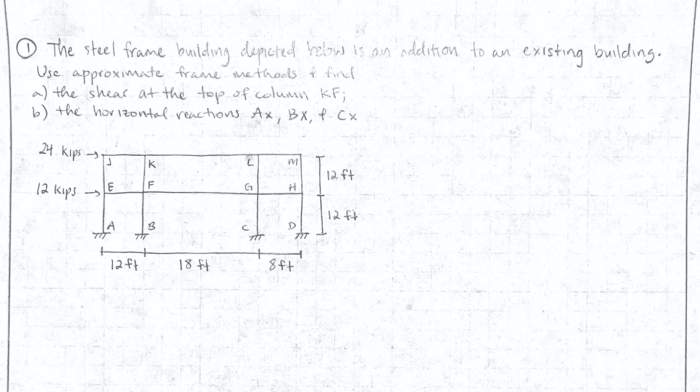 ① The steel frame building depicted below is an addition to an existing building.
Use approximate frame methods & find
a) the shear at the top of column KF;
b) the horizontal reactions Ax, Bx, & Cx
24 kips
J K L M
12 ft
12 kips
E F G H
12 ft
A B C D
12 ft 18 ft 8 ft